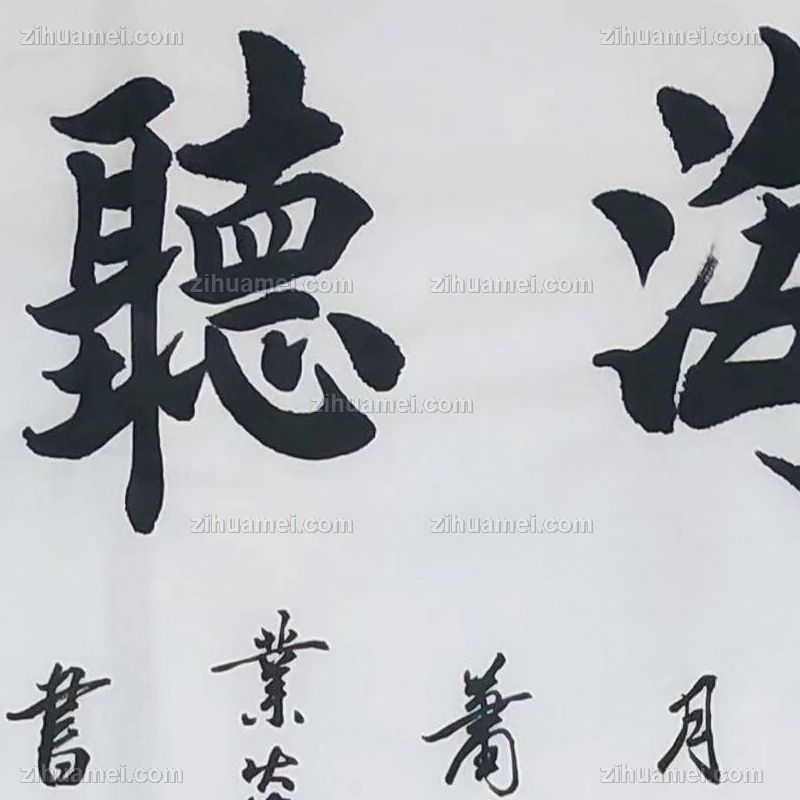 聽
書 業 蕭 月
zihuamei.com zihuamei.com
zihuamei.com zihuamei.com
zihuamei.com
zihuamei.com zihuamei.com
zihuamei.com zihuamei.com